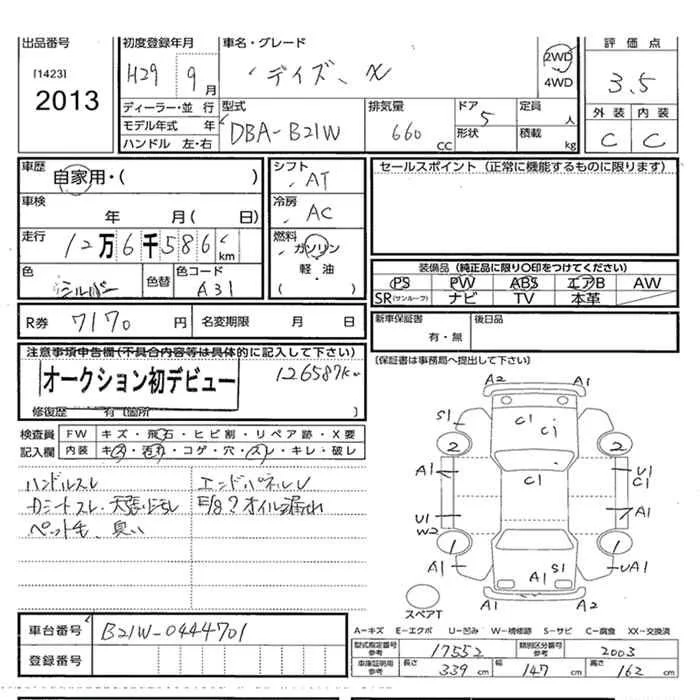 出品番号 初度登録年月 車名・グレード 2WD 評価点
[1423] H29 9月 デイズ、X 4WD 3.5
2013 ディーラー・並行 型式 排気量 ドア 5 定員 人 外装 内装
モデル年式 年 DBA-B21W 660 CC 形状 積載 kg C C
ハンドル 左・右
車歴 自家用・( ) シフト AT セールスポイント (正常に機能するものに限ります)
車検 年 月( 日) 冷房 AC
走行 12万6千586 km 燃料 ガソリン
軽・油
( )
色 シルバー 色替 色コード A31
装備品 (純正品に限り○印をつけてください)
PS PW ABS エアB AW
SR(サンルーフ) ナビ TV 本革
R券 7170 円 名変期限 月 日 新車保証書 有・無 後日品
注意事項申告欄(不具合内容等は具体的に記入して下さい) (保証書は事務局へ提出して下さい)
オークション初デビュー 126587Km
修復歴 有 [箇所 ]
検査員 FW キズ・飛石・ヒビ割・リペア跡・X要
記入欄 内装 キズ・汚れ・コゲ・穴・スレ・キレ・破レ
ハンドルスレ エンドパネルU
カミートスレ・天張ヨゴレ
ペット毛、臭い オイル漏れ
A2 A1
S1 C1 C1
2 2
A1 C1 U1 C1
U1 A1
W2 1 1
A1 A1 S1 UA1
A1 A2
スペアT
A-キズ E-エクボ U-凹み W-補修跡 S-サビ C-腐食 XX-交換済
車台番号 B21W-0444701
登録番号
型式指定番号 参考 17552 類別区分番号 参考 2003
車庫証明用 参考 長さ 339 cm 幅 147 cm 高さ 162 cm